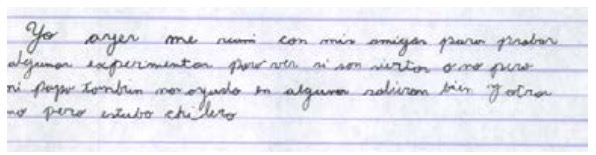 Yo ayer me reuni con mis amigas para probar
algunas experimentos para ver si son siertos o no pero
mi papa tambien nos ayudo en algunas salieron bien y otros
no pero estubo chilero